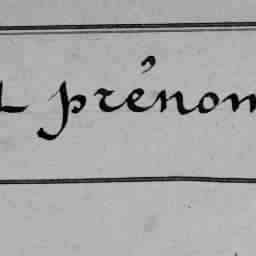 prénom